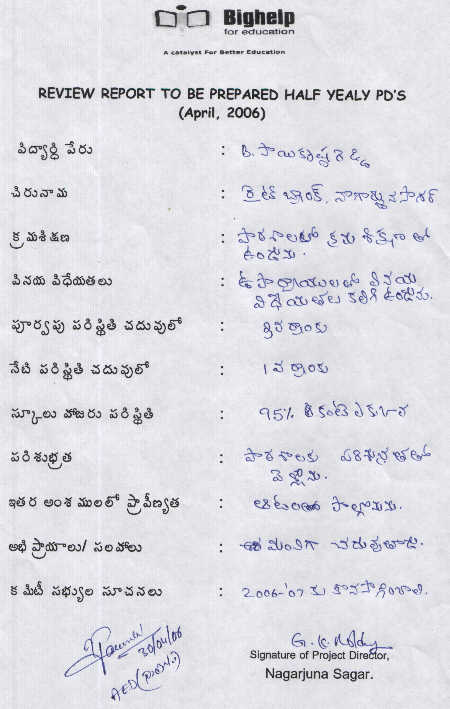 Bighelp
for education
A catalyst For Better Education
REVIEW REPORT TO BE PREPARED HALF YEALY PD'S
(April, 2006)
విద్యార్ధి పేరు : B. సాయికృష్ణ రెడ్డి
చిరునామ : రైట్ బ్యాంక్, నాగార్జునసాగర్
క్రమశిక్షణ : పాఠశాలలో క్రమశిక్షణతో
ఉండును.
వినయ విధేయతలు : ఉపాధ్యాయులలో వినయ
విధేయతలు కలిగి ఉండును.
పూర్వపు పరిస్థితి చదువులో : వ ర్యాంకు
నేటి పరిస్థితి చదువులో : 1వ ర్యాంకు
స్కూలు హాజరు పరిస్థితి : 95% కంటె ఎక్కువ
పరిశుభ్రత : పాఠశాలకు పరిశుభ్రతతో
వెళ్ళును.
ఇతర అంశములలో ప్రావీణ్యత : పాల్గొనును.
అభిప్రాయాలు/ సలహాలు : మంచిగా చదువుతాడు.
కమిటీ సభ్యుల సూచనలు : 2006-'07 కు కొనసాగించాలి.
30/04/06
G. K. Reddy
Signature of Project Director,
Nagarjuna Sagar.